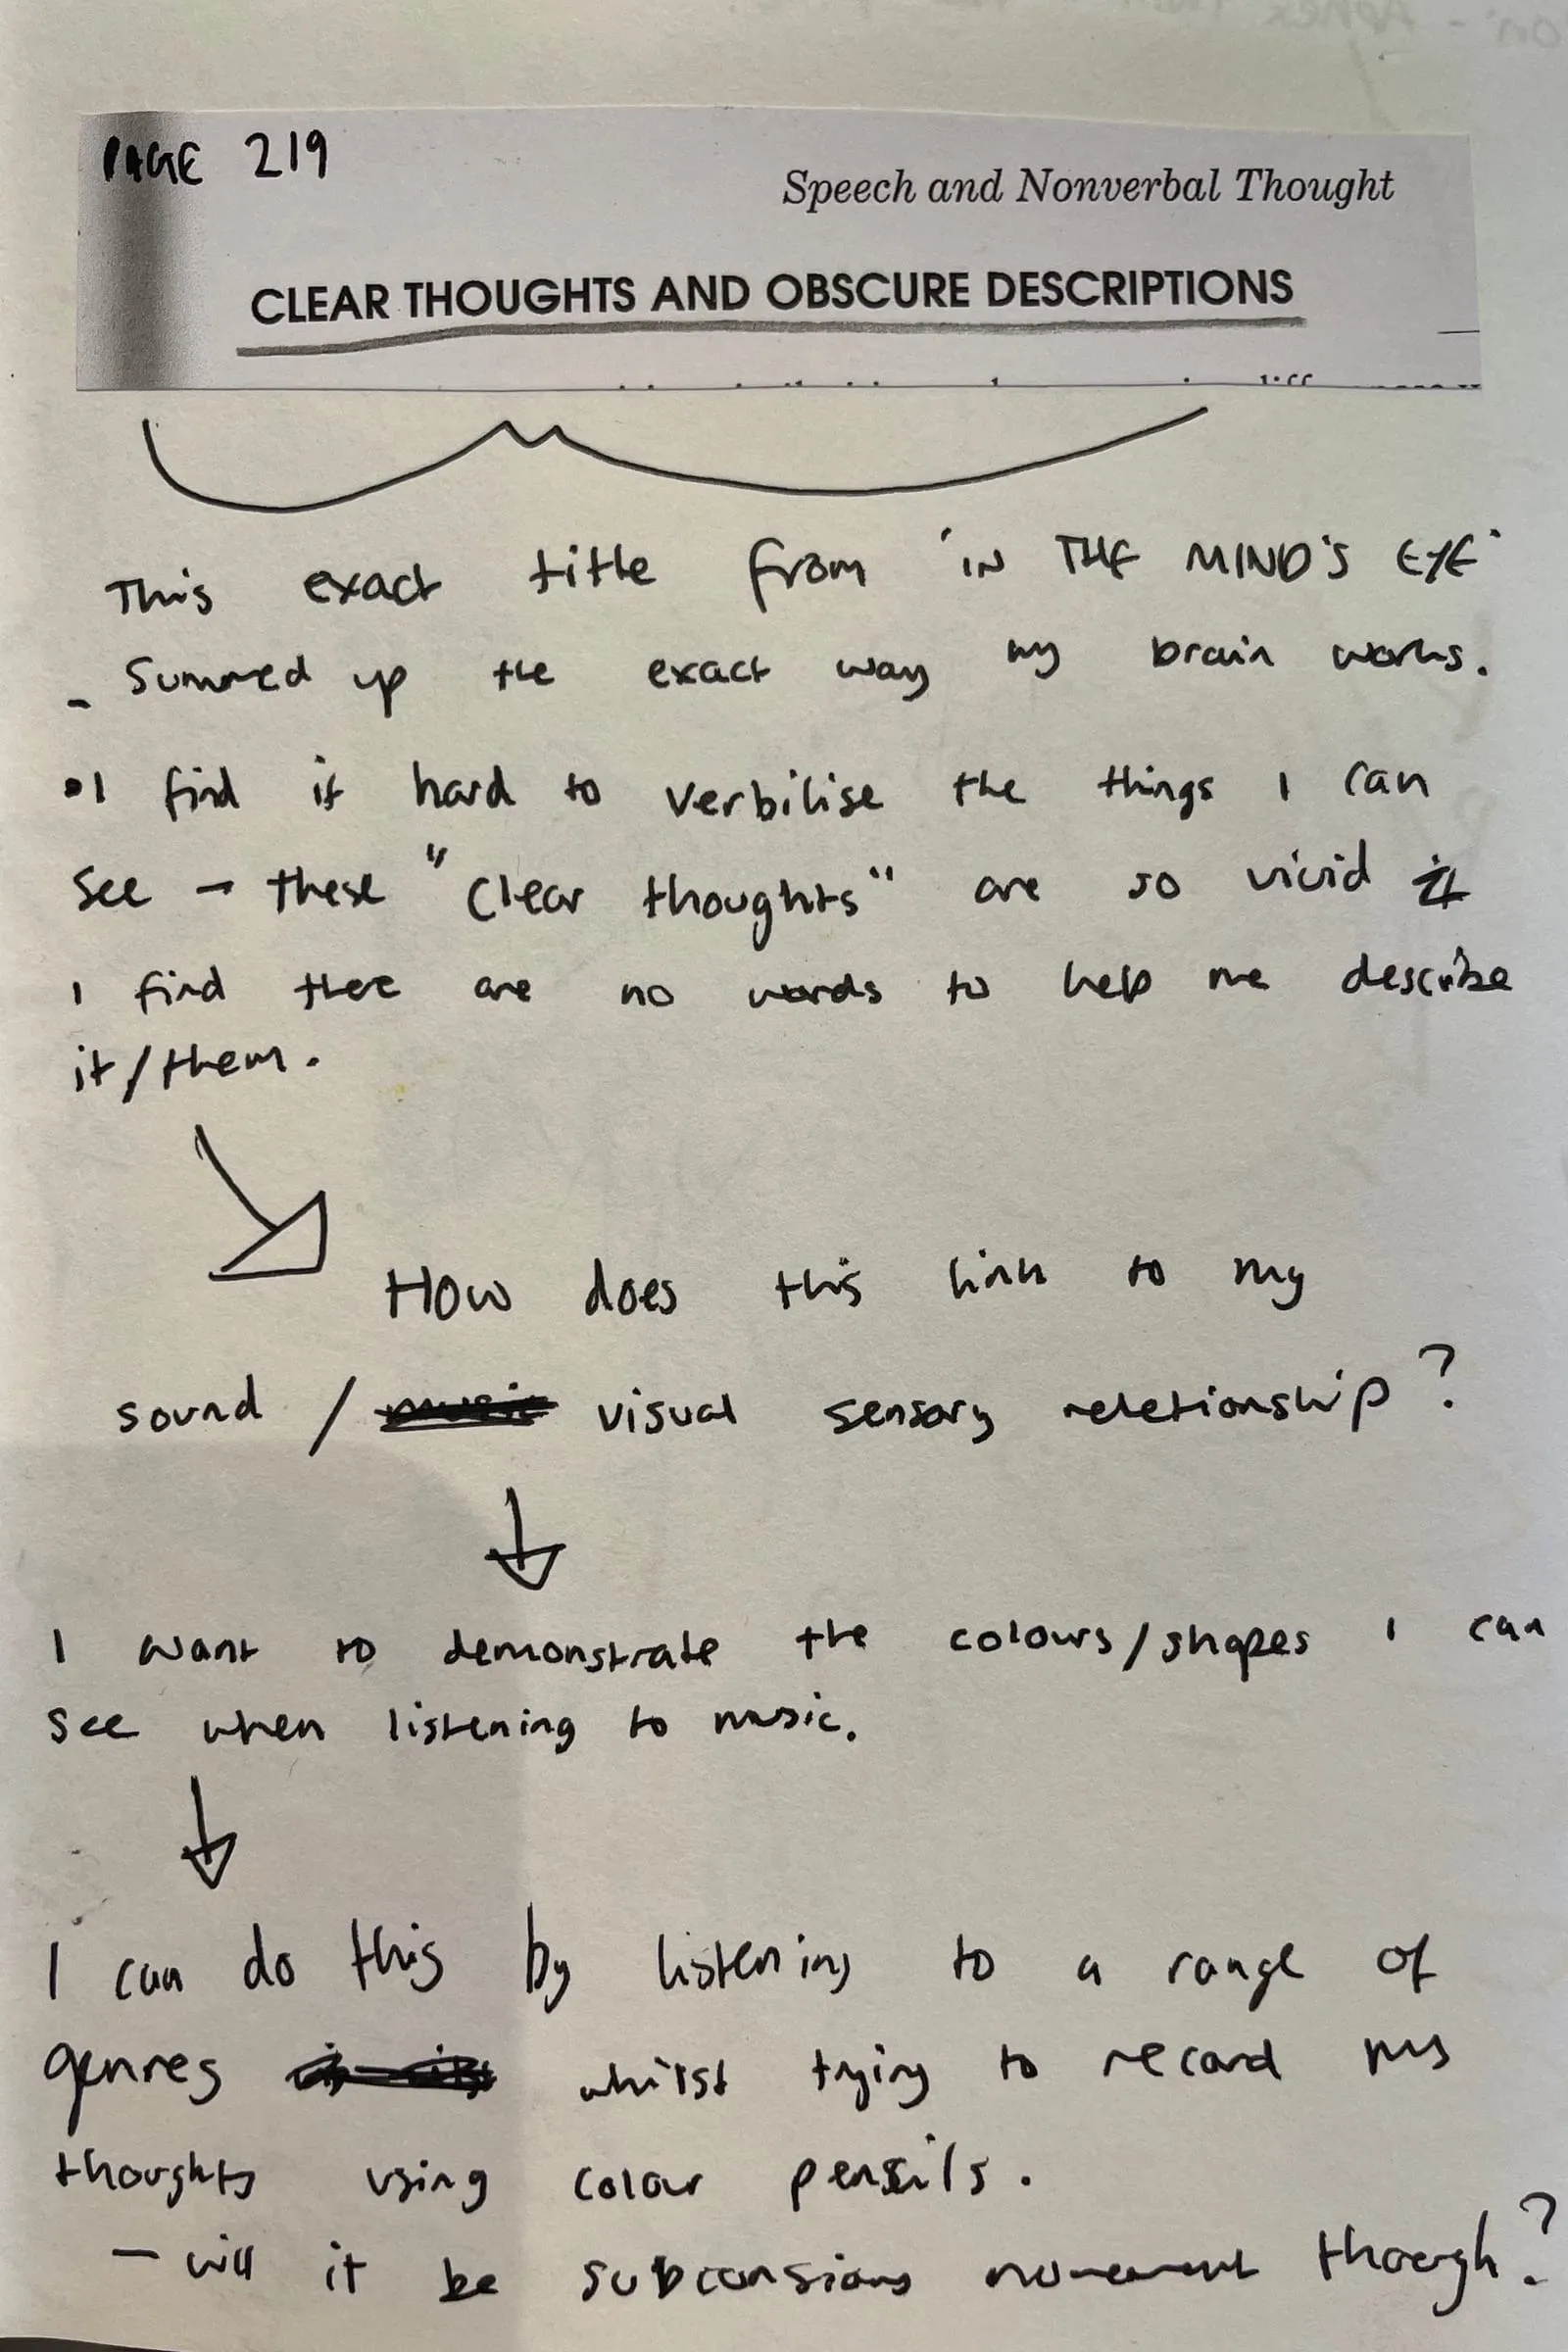 PAGE 219
Speech and Nonverbal Thought
CLEAR THOUGHTS AND OBSCURE DESCRIPTIONS
This exact title from 'IN THE MIND'S EYE'
- Summed up the exact way my brain works.
• I find it hard to verbilise the things I can
see → these "clear thoughts" are so vivid
I find there are no words to help me describe
it/them.
How does this link to my
sound / music visual sensory reletionship?
I want to demonstrate the colours/shapes I can
see when listening to music.
I can do this by listening to a range of
genres whilst trying to record my
thoughts using colour pensils.
- will it be subconsious movement though?